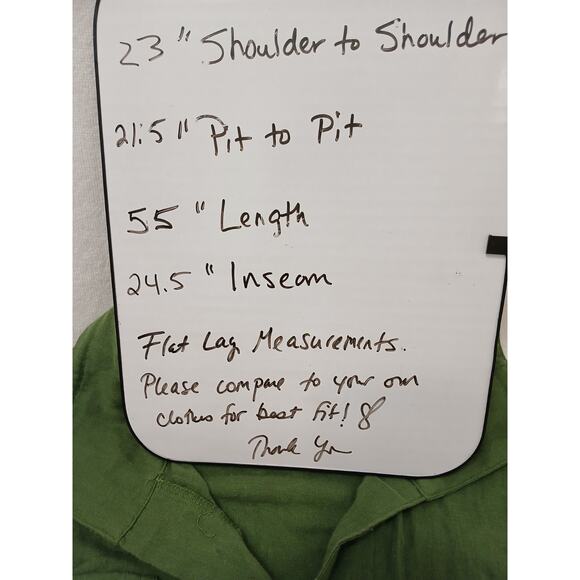 23" Shoulder to Shoulder
21.5" Pit to Pit
55" Length
24.5" Inseam
Flat Lay Measurements.
Please compare to your own
clothes for best fit! 8
Thank You